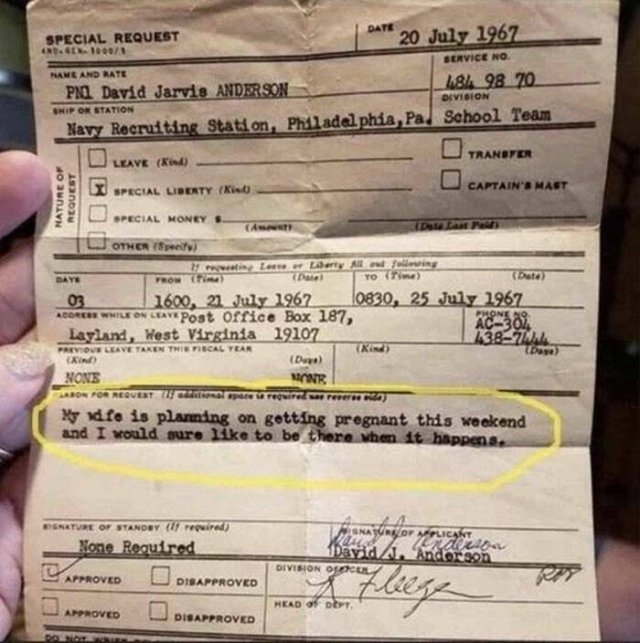 SPECIAL REQUEST
DATE 20 July 1967
NAME AND RATE
SERVICE NO.
PN1 David Jarvis ANDERSON
484 98 70
SHIP OR STATION
DIVISION
Navy Recruiting Station, Philadelphia, Pa. School Team
NATURE OF REQUEST
LEAVE (Kind)
TRANSFER
X SPECIAL LIBERTY (Kind)
CAPTAIN'S MAST
SPECIAL MONEY $
(Amount)
(Date Last Paid)
OTHER (Specify)
If requesting Leave or Liberty fill out following
DAYS
FROM (Time) (Date)
TO (Time) (Date)
03
1600, 21 July 1967
0830, 25 July 1967
ADDRESS WHILE ON LEAVE Post Office Box 187,
PHONE NO.
AC-304
Layland, West Virginia 19107
438-7444
PREVIOUS LEAVE TAKEN THIS FISCAL YEAR
(Kind) (Days)
(Kind) (Days)
NONE NONE
REASON FOR REQUEST (If additional space is required use reverse side)
My wife is planning on getting pregnant this weekend
and I would sure like to be there when it happens.
SIGNATURE OF STANDBY (If required)
SIGNATURE OF APPLICANT
None Required
David J. Anderson
APPROVED
DISAPPROVED
DIVISION OFFICER
HEAD OF DEPT.
APPROVED
DISAPPROVED
DO NOT WRITE